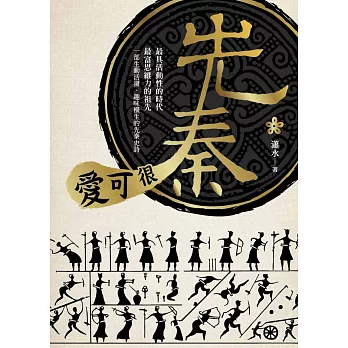 先秦
很可愛
最具活動性的時代
最富思維力的祖先
一部生動活潑、趣味橫生的先秦史詩
瀟水 著